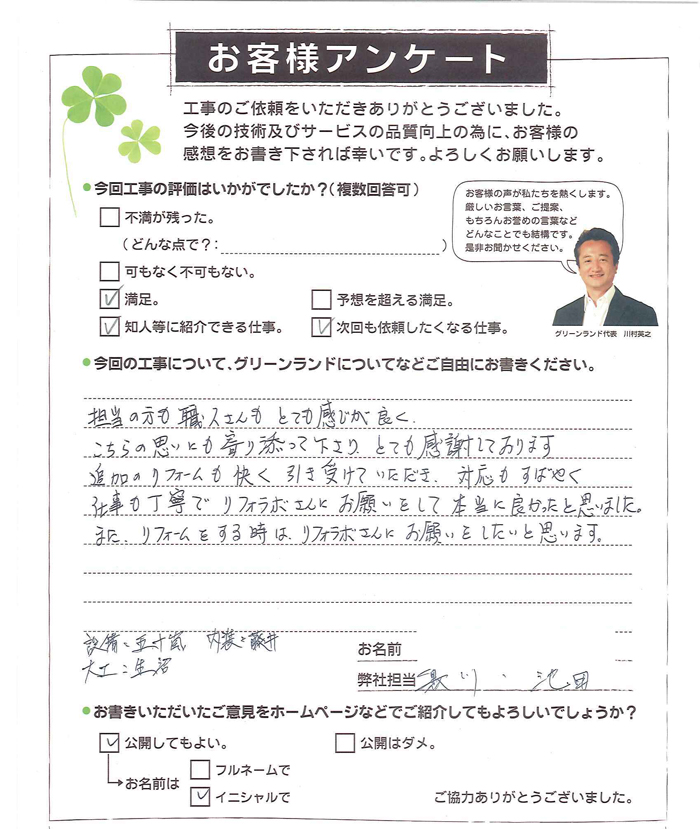 お客様アンケート
工事のご依頼をいただきありがとうございました。
今後の技術及びサービスの品質向上の為に、お客様の
感想をお書き下されば幸いです。よろしくお願いします。
●今回工事の評価はいかがでしたか?(複数回答可)
お客様の声が私たちを熱くします。
厳しいお言葉、ご提案、
もちろんお誉めの言葉など
どんなことでも結構です。
是非お聞かせください。
□ 不満が残った。
(どんな点で?: )
□ 可もなく不可もない。
☑ 満足。 □ 予想を超える満足。
☑ 知人等に紹介できる仕事。 ☑ 次回も依頼したくなる仕事。
グリーンランド代表 川村英之
●今回の工事について、グリーンランドについてなどご自由にお書きください。
担当の方も職人さんも とても感じが良く、
こちらの思いにも寄り添って下さり とても感謝しております
追加のリフォームも快く引き受けていただき、対応もすばやく
仕事も丁寧で リフォラボさんに お願いをして 本当に良かったと思いました。
また、リフォームをする時は、リフォラボさんに お願いをしたいと思います。
設備:五十嵐 内装:藤井
大工:生沼
お名前
弊社担当 川・池田
●お書きいただいたご意見をホームページなどでご紹介してもよろしいでしょうか?
☑ 公開してもよい。 □ 公開はダメ。
お名前は □ フルネームで
☑ イニシャルで
ご協力ありがとうございました。